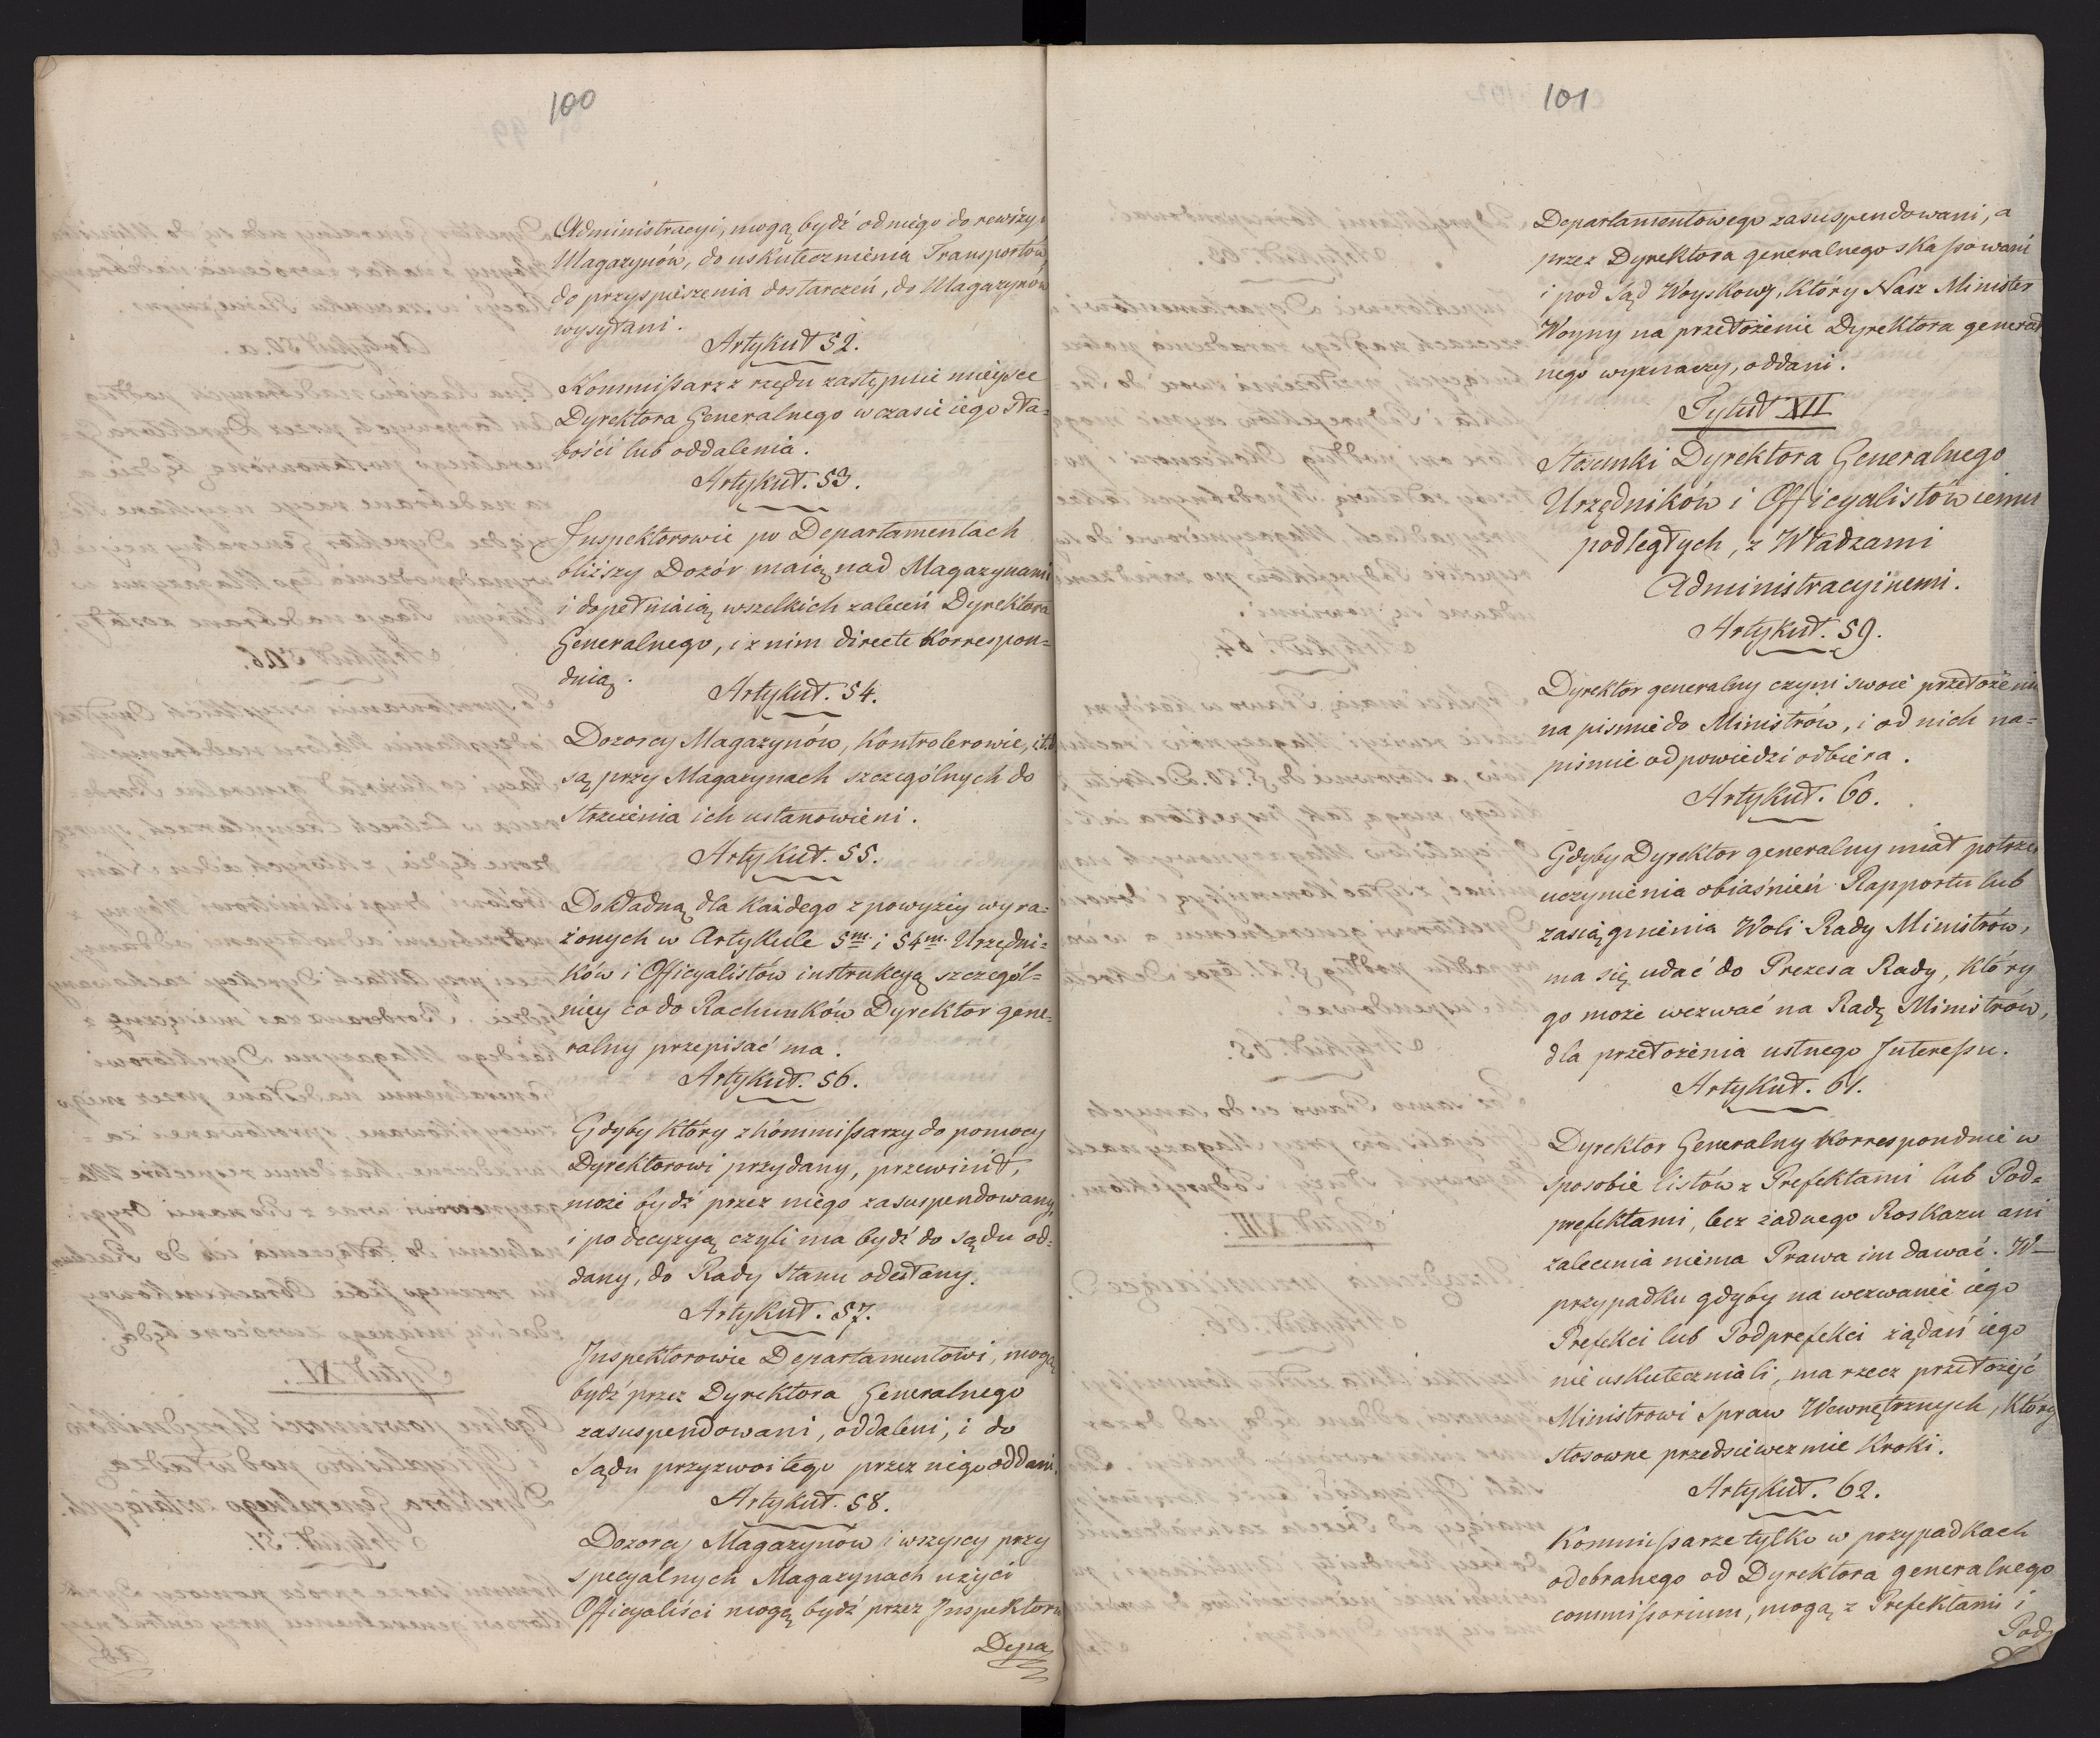 100
Administracyi, mogą bydź od niego do rewizyi
Magazynów, do uskutecznienia Transportów,
do przyspieszenia dostarczeń, do Magazynów
wysyłani.
Artykuł 52.
Kommißarz z rzędu zastępuie mieysce
Dyrektora Generalnego w czasie iego sła=
bości lub oddalenia.
Artykuł. 53.
Inspektorowie po Departamentach
bliższy Dozór maią nad Magazynami
i dopełniaią wszelkich zaleceń Dyrektora
Generalnego, i z nim directe Korrespon=
duią.
Artykuł. 54.
Dozorcy Magazynów, Kontrolerowie, i t.d.
są przy Magazynach szczególnych do
strzeżenia ich ustanowieni.
Artykuł. 55.
Dokładną dla każdego z powyżey wyra=
żonych w Artykule 5m. i 54m. Urzędni=
ków i Officyalistów instrukcyą szczegól=
niey co do Rachunków Dyrektor gene=
ralny przepisać ma.
Artykuł. 56.
Gdyby który z Kommißarzy do pomocy
Dyrektorowi przydany, przewinił,
może bydź przez niego zasuspendowany,
i po decyzyą czyli ma bydź do sądu od=
dany, do Rady Stanu odesłany.
Artykuł. 57.
Inspektorowie Departamentowi, mogą
bydź przez Dyrektora Generalnego
zasuspendowani, oddaleni, i do
Sądu przyzwoitego przez niego oddani.
Artykuł. 58.
Dozorcy Magazynów i wszyscy przy
specyalnych Magazynach użyci
Officyaliści mogą bydź przez Inspektora
Depa
101
Departamentowego zasuspendowani, a
przez Dyrektora generalnego skaßowani
i pod Sąd Woyskowy, który Nasz Minister
Woyny na przełożenie Dyrektora general
nego wyznaczy, oddani.
Tytuł XII
Stosunki Dyrektora Generalnego
Urzędników i Officyalistów iemu
podległych, z Władzami
Administracyinemi.
Artykuł. 59.
Dyrektor generalny czyni swoie przełożenia
na piśmie do Ministrów, i od nich na=
piśmie odpowiedzi odbiera.
Artykuł. 60.
Gdyby Dyrektor generalny miał potrze
uczynienia obiaśnień Rapportu lub
zasiągnienia Woli Rady Ministrów,
ma się udać do Prezesa Rady, który
go może wezwać na Radę Ministrów,
dla przełożenia ustnego Intereßu.
Artykuł. 61.
Dyrektor Generalny Korresponduie w
sposobie listów z Prefektami lub Pod=
prefektami, lecz żadnego Roskazu ani
zalecenia niema Prawa im dawać. W
przypadku gdyby na wezwanie iego
Prefekci lub Podprefekci żądań iego
nie uskuteczniali, ma rzecz przełożyć
Ministrowi Spraw Wewnętrznych, który
stosowne przedsięweźmie Kroki.
Artykuł. 62.
Kommißarze tylko w przypadkach
odebranego od Dyrektora generalnego
commißorium, mogą z Prefektami i
Pod